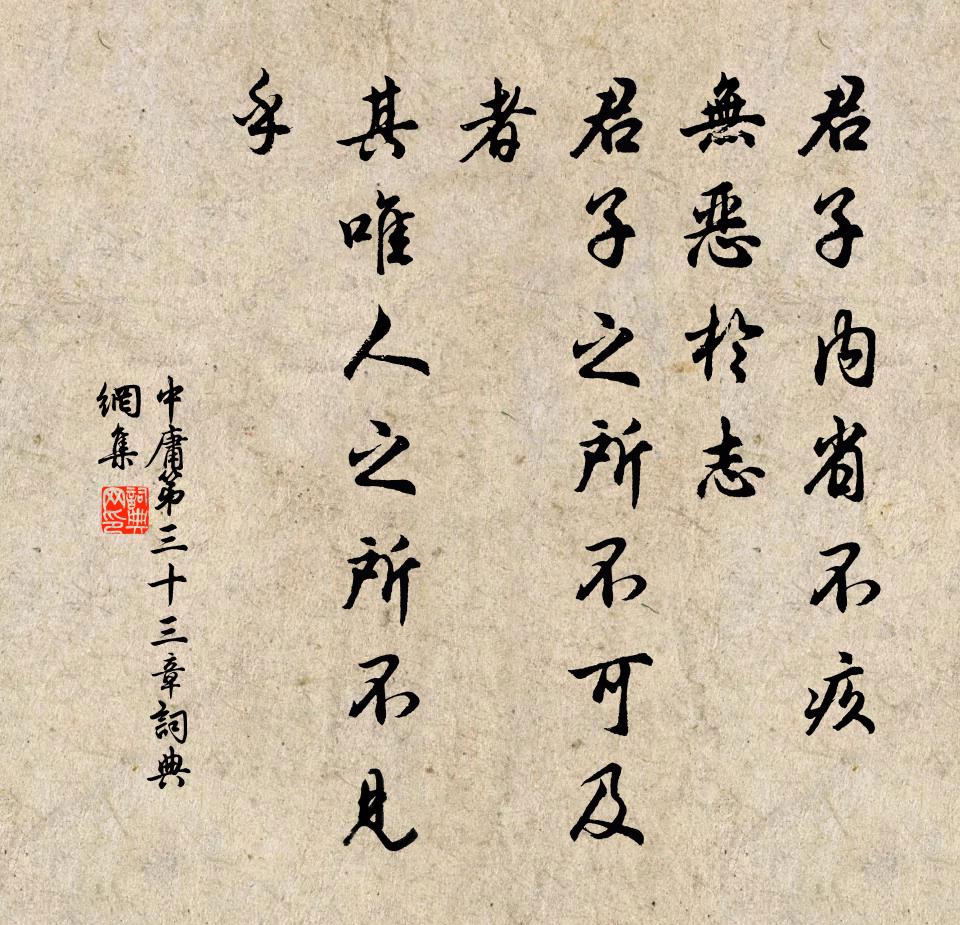 君子內省不疚
無惡於志
君子之所不可及
者
其唯人之所不見
乎
中庸第三十三章詞典
網集
詞典
网印